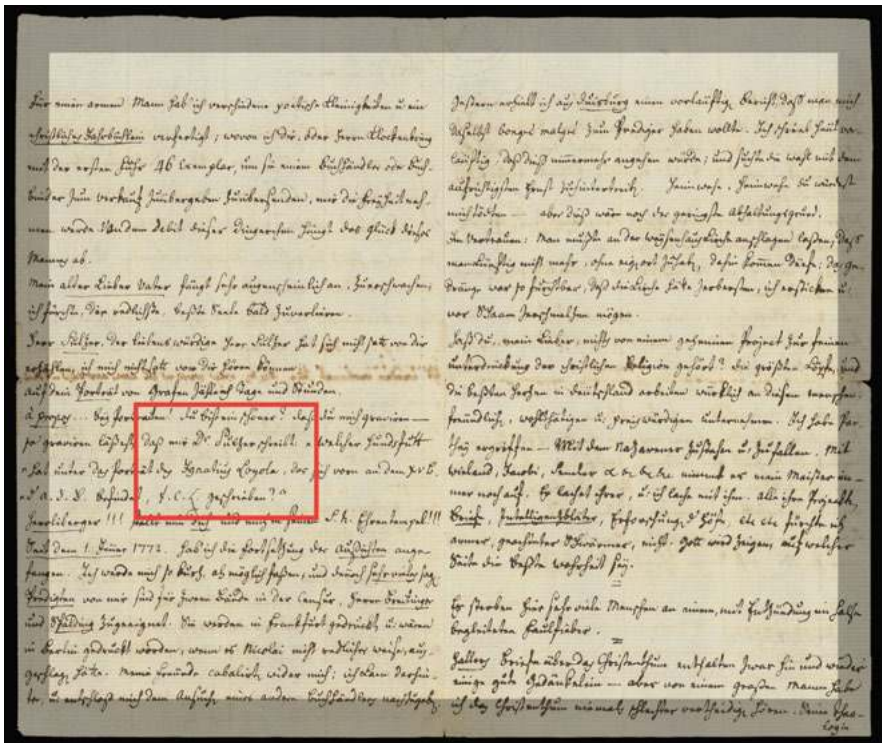 Für einen armen Mann hab' ich verschiedene poetische Kleinigkeiten u. ein
christliches Jahrbüchlein verfertigt; wovon ich dir, oder Herrn Klockenbring
mit der ersten Fuhr 46 Exemplar, um sie einem Buchhändler oder Buch-
binder zum Verkauf zu übergeben zu übersenden, mir die Freiheit neh-
men werde. Von dem Debit dieser Dingerchen hängt das Glück dieses
Mannes ab.
Mein alter Lieber Vater fängt sehr augenscheinlich an, zu erschwachen;
ich fürchte, die redlichste, beste Seele bald zu verlieren.
Herr Sulzer, der liebenswürdige Herr Sulzer hat sich nicht satt von dir
erzählen, ich mich nicht satt von dir hören können.
auf dein Porträt von Grafen zähl ich Tage und Stunden.
à propos... du bist ein schöner! daß du mich graviren —
so graviren lässest! daß mir Dr Sulzer schreibt: "welcher Hundsfutt
"hat unter das Porträt des Ignatius Loyola, das sich vorn an dem
a. d. B. befindet, J. C. L. geschrieben?"
Herrliberger!!! stellt mich in seinen Ehrentempel!!!
Seit dem 1. Jenner 1772. hab ich die Fortsetzung der Aussichten ange-
fangen. Ich werde mich so kurz, als möglich fassen; und dennoch sehr vieles sagen.
Predigten von mir sind für zween Bände in der Censur, Herrn Breitinger
und Spalding zugeeignet. Sie werden in Frankfurt gedruckt, u. wären
in Berlin gedruckt worden, wenn es Nicolai nicht redlicher weise, aus-
geschlagen hätte. Meine Freunde cabalirten wider mich; ich kam darhin-
ter, u. entschloß mich dem Ansuchen eines andern Buchhändlers nachzugeben.
Gestern erhielt ich aus Duisburg einen vorläuftigen Bericht, daß man mich
daselbst bongré malgré zum Prediger haben wollte. Ich schrieb heut vor-
läuftig, daß dieß nimmermehr angehen würde; und suchte die Wahl mit dem
aufrichtigsten Ernst zu hintertreiben. Heimwehe, Heimwehe du würdest
mich tödten — aber dieß wär noch der geringste Abhaltungsgrund.
Im Vertrauen: Man mußte an der Waysenhauskirche anschlagen lassen, daß
man künftig nicht mehr, ohne eignen Ort zuhaben, dahin kommen dürfe; das Ge-
dränge war so furchtbar, daß die Kirche hätte zerbersten, ich ersticken u.
vor Schaam zerschmelzen mögen.
Hast du, mein Lieber, nichts von einem geheimen Project zur feinen
unterdrückung der christlichen Religion gehört? die größten Köpfe, und
die besten Herzen in Deutschland arbeiten würklich an diesem menschen-
freundlichen, wohlthätigen u. preiswürdigen unternehmen. Ich habe Par-
they ergriffen — Mit dem Nazarener zu stehen u. zu fallen. Mit
Wieland, Jacobi, Semler &c &c &c nimmt es mein Meister im-
mer noch auf. Er lachet ihrer, u. ich lache mit ihm. alle ihre Projeckte,
Briefe, Intelligenzblätter, Erforschung der Höfe, etc etc fürchte ich
armer, gehöhnter Schwärmer, nicht. Gott wird zeigen, auf welcher
Seite die beste Wahrheit sey.
Es sterben hier sehr viele Menschen an einem, mit Entzündung im Halse
begleiteten Faulfieber.
Hallers Briefe über das Christenthum enthalten zwar hin und wieder
einige gute Gedankelein — aber von einem großen Manne habe
ich das Christenthum niemals schlechter vertheidigen hören. Seine Theo-
logie